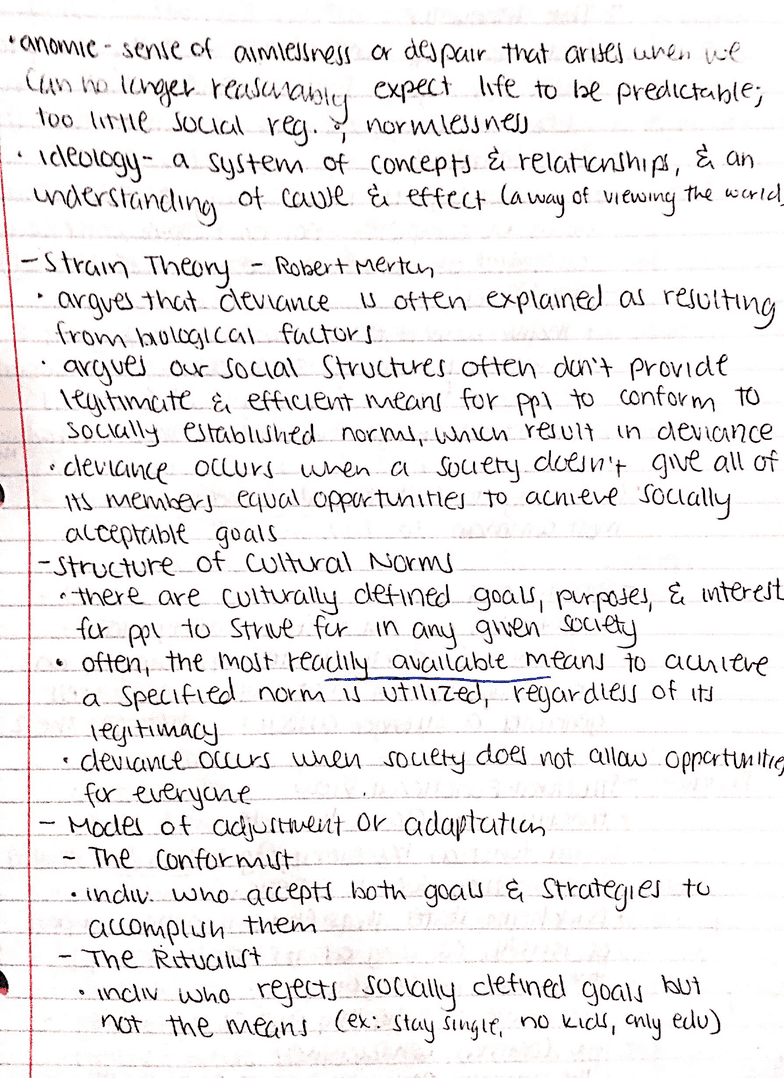 • anomie - sense of aimlessness or despair that arises when we
can no longer reasonably expect life to be predictable;
too little social reg. & normlessness
• ideology - a system of concepts & relationships, & an
understanding of cause & effect (a way of viewing the world
- Strain Theory - Robert Merton
• argues that deviance is often explained as resulting
from biological factors
• argues our social structures often don't provide
legitimate & efficient means for ppl to conform to
socially established norms, which result in deviance
• deviance occurs when a society doesn't give all of
its members equal opportunities to achieve socially
acceptable goals
- Structure of Cultural Norms
• there are culturally defined goals, purposes, & interest
for ppl to strive for in any given society
• often, the most readily available means to achieve
a specified norm is utilized, regardless of its
legitimacy
• deviance occurs when society does not allow opportunitie
for everyone
- Modes of adjustment or adaptation
- The Conformist
• indiv. who accepts both goals & strategies to
accomplish them
- The Ritualist
• indiv who rejects socially defined goals but
not the means (ex: stay single, no kids, only edu)